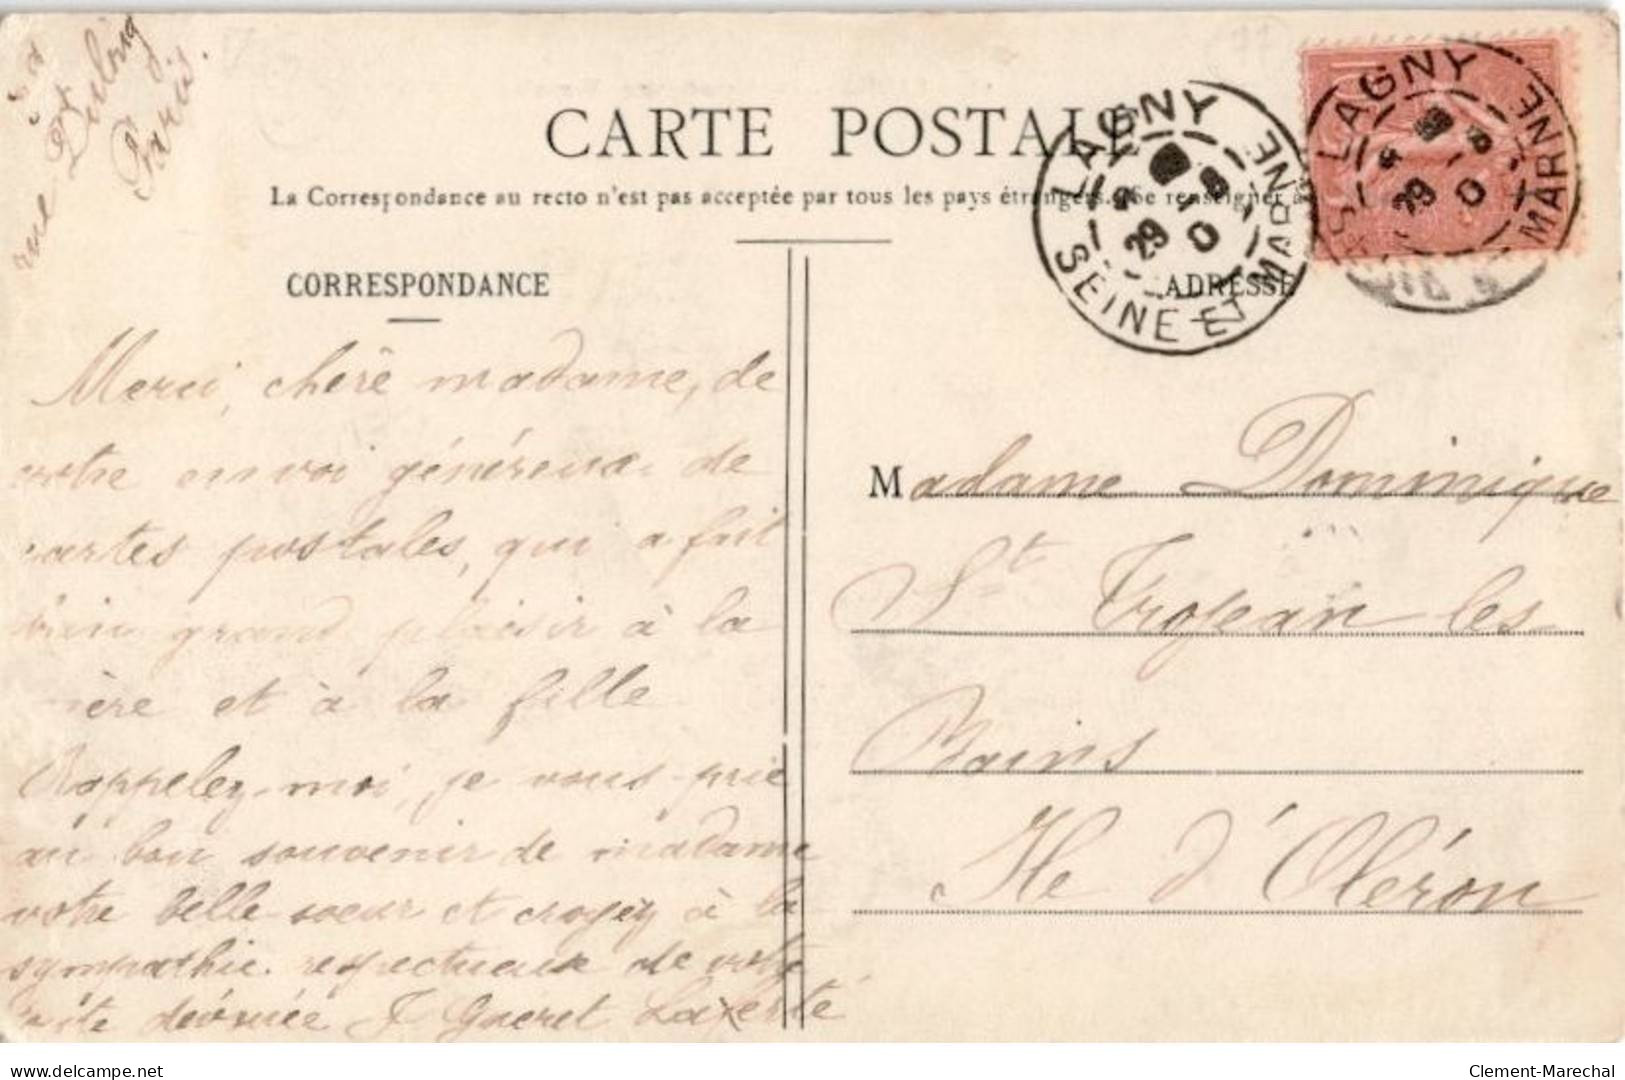 rue Dulong
Paris.
CARTE POSTALE
La Correspondance au recto n'est pas acceptée par tous les pays étrangers. (Se renseigner à
CORRESPONDANCE
ADRESSE
LAGNY
SEINE ET MARNE
29
LAGNY
MARNE
29
Merci, chère madame, de
votre envoi généreux de
cartes postales, qui a fait
bien grand plaisir à la
mère et à la fille
Rappelez-moi, je vous prie
au bon souvenir de madame
votre belle soeur et croyez à la
sympathie respectueuse de votre
toute dévouée J Gueret Laferté
Madame Dominique
St Trojean les
Bains
Ile d'Oléron
delcampe.net
Clement-Marechal